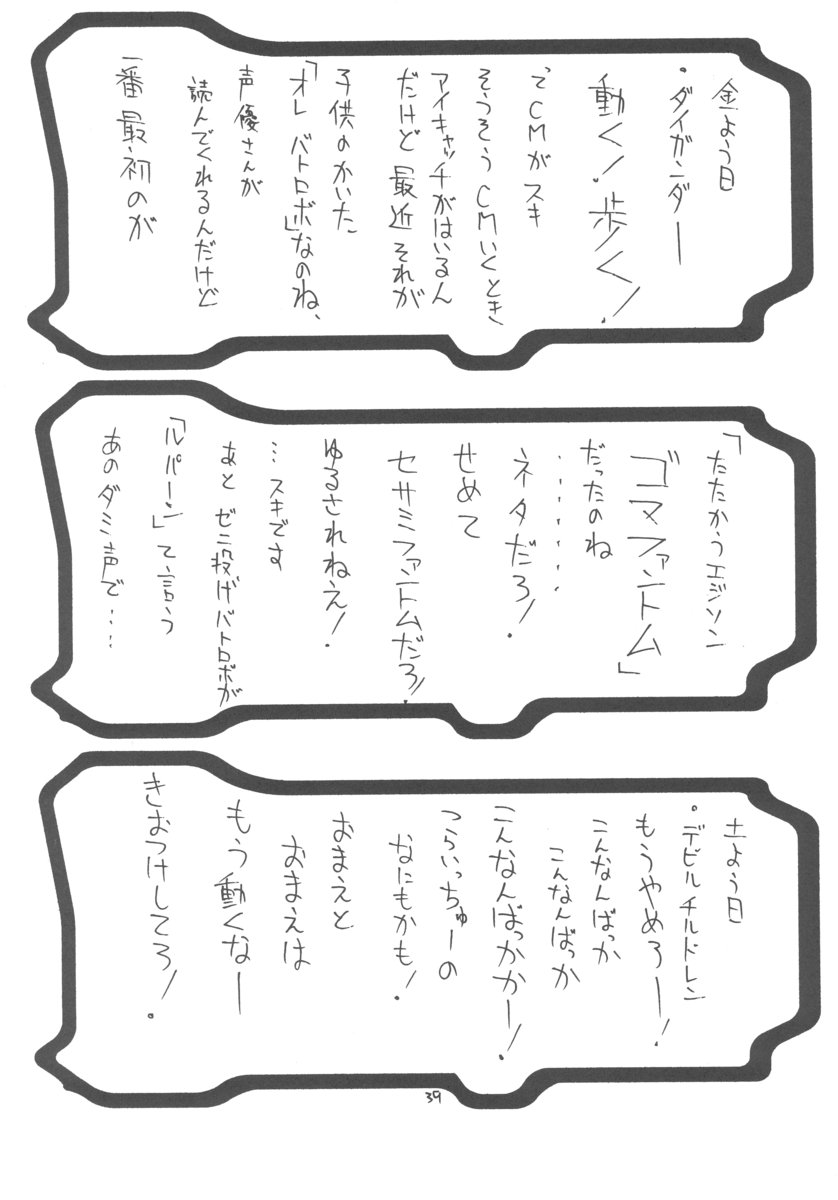 金よう日
・ダイガンダー
動く!歩く!
てCMがスキ
そうそうCMいくとき
アイキャッチがはいるん
だけど 最近それが
子供のかいた
「オレ バトロボ」なのね、
声優さんが
読んでくれるんだけど
一番最初のが
「たたかうエジソン
ゴマファントム」
だったのね
・・・・・・・
ネタだろ!
せめて
セサミファントムだろ!
ゆるされねえ!
…スキです
あと ゼニ投げバトロボが
「ルパーン」て言う
あのダミ声で….
土よう日
・デビルチルドレン
もうやめろー!
こんなんばっか
こんなんばっか
こんなんばっかかー!
つらいっちゅーの
なにもかも!
おまえと
おまえは
もう動くなー
きおつけしてろ!
39